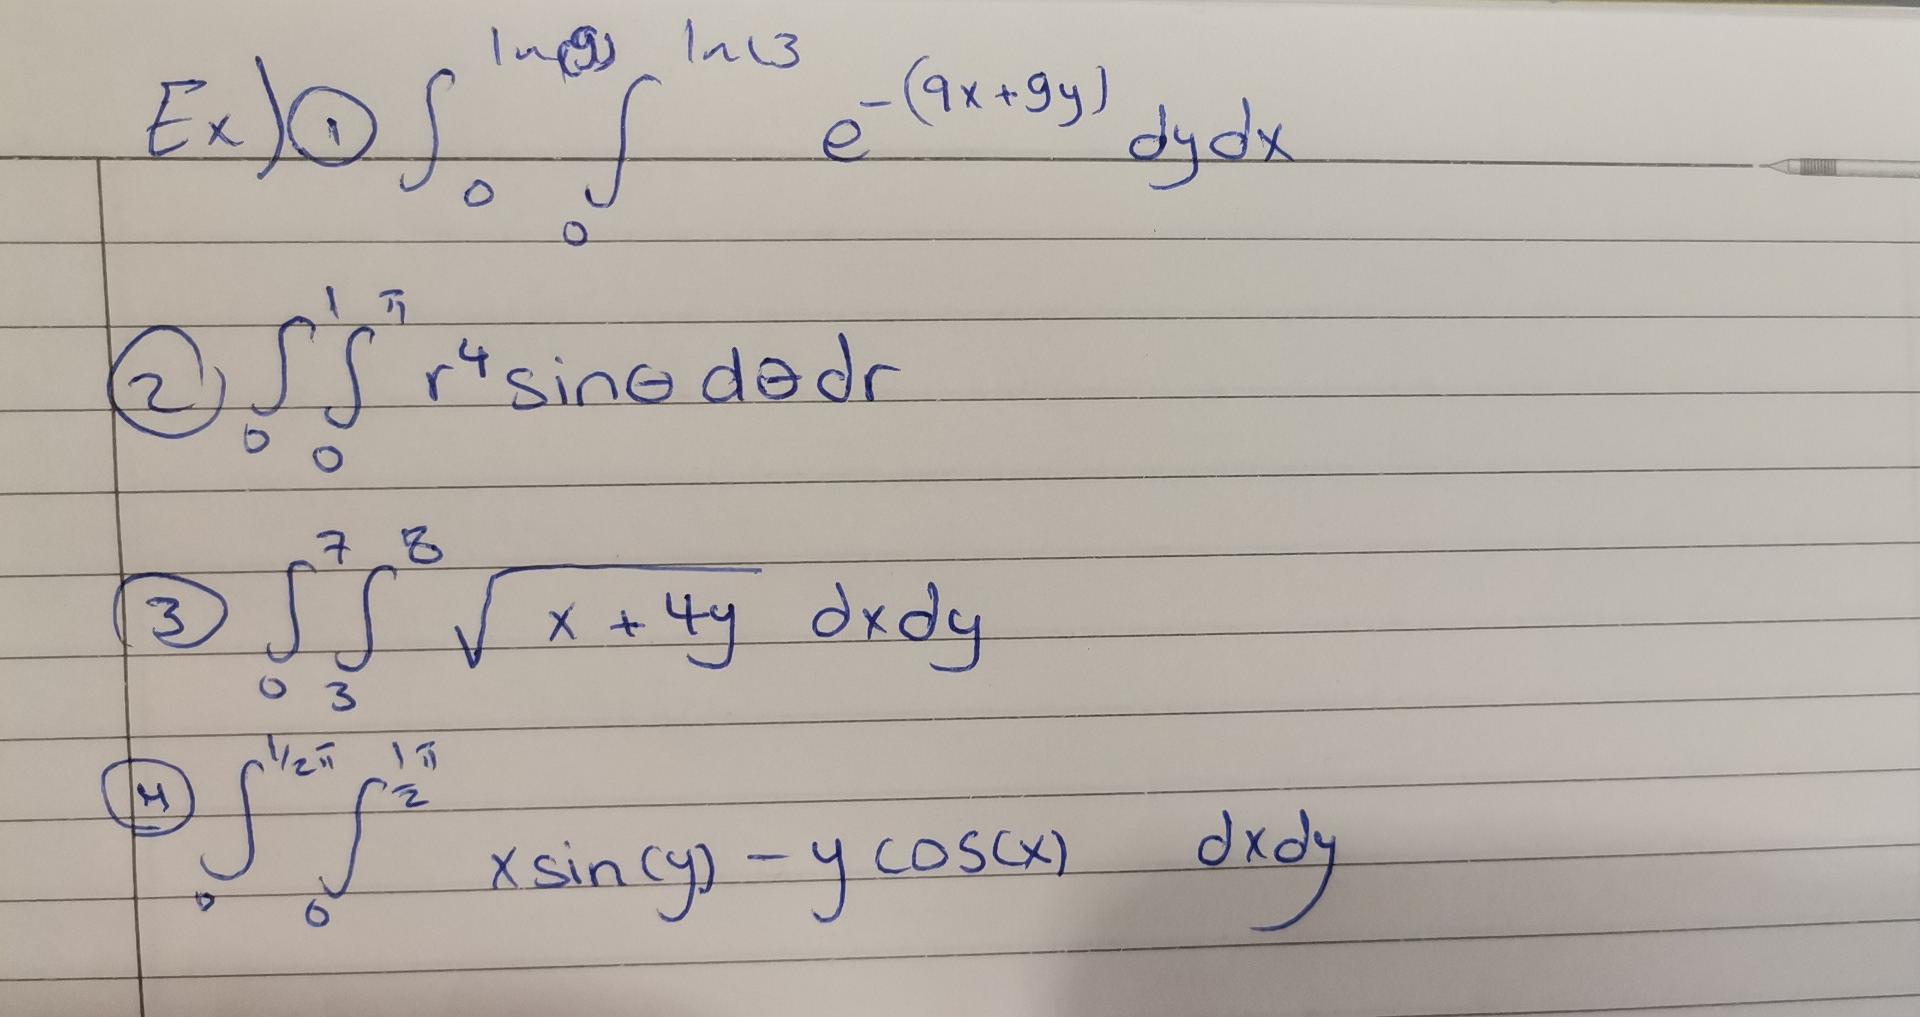 Ex) ① ∫₀^ln(9) ∫₀^ln(3 e^-(9x+9y) dydx
② ∫₀^1 ∫₀^π r⁴ sinθ dθ dr
③ ∫₀^7 ∫₃^8 √(x + 4y) dxdy
④ ∫₀^1/2π ∫₀^1/2 π x sin(y) - y cos(x) dxdy